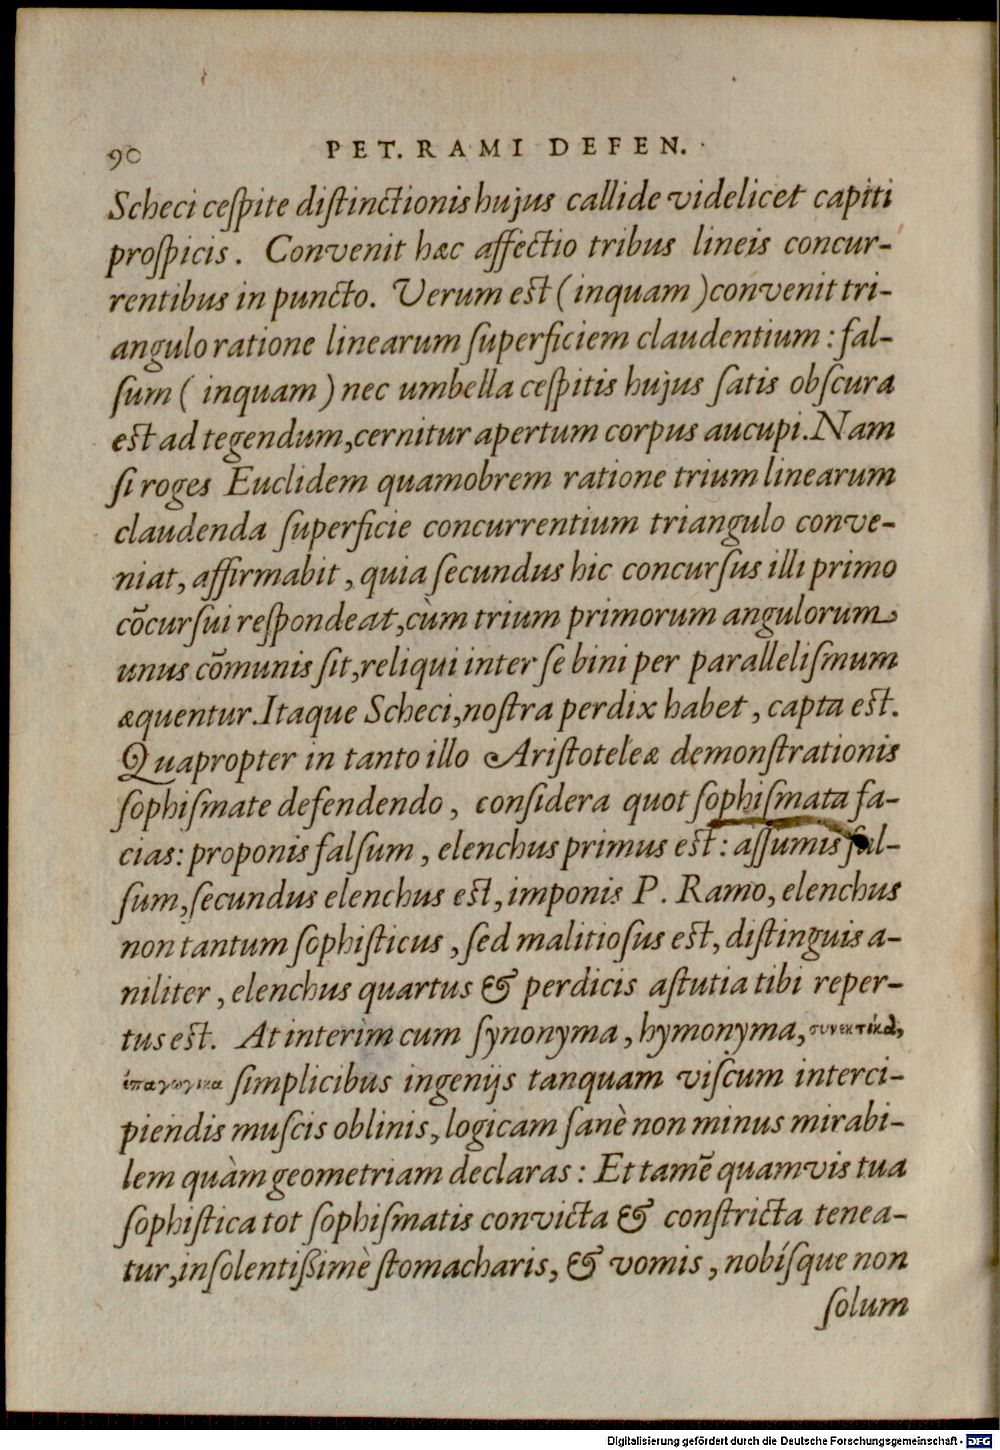 90 PET. RAMI DEFEN.
Scheci ceſpite diſtinctionis hujus callide videlicet capiti
proſpicis. Convenit hæc affectio tribus lineis concur-
rentibus in puncto. Verum est (inquam) convenit tri-
angulo ratione linearum ſuperficiem claudentium: fal-
ſum (inquam) nec umbella ceſpitis hujus ſatis obſcura
est ad tegendum, cernitur apertum corpus aucupi. Nam
ſi roges Euclidem quamobrem ratione trium linearum
claudenda ſuperficie concurrentium triangulo conve-
niat, affirmabit, quia ſecundus hic concurſus illi primo
cōcurſui reſpondeat, cùm trium primorum angulorum
unus cōmunis ſit, reliqui inter ſe bini per paralleliſmum
æquentur. Itaque Scheci, noſtra perdix habet, capta est.
Quapropter in tanto illo Ariſtoteleæ demonſtrationis
ſophiſmate defendendo, conſidera quot ſophiſmata fa-
cias: proponis falſum, elenchus primus est: aſſumis fal-
ſum, ſecundus elenchus est, imponis P. Ramo, elenchus
non tantum ſophiſticus, ſed malitioſus est, diſtinguis a-
niliter, elenchus quartus & perdicis aſtutia tibi reper-
tus est. At interim cum ſynonyma, hymonyma, συνεκτικὰ,
ἐπαγωγικα ſimplicibus ingenijs tanquam viſcum interci-
piendis muſcis oblinis, logicam ſanè non minus mirabi-
lem quàm geometriam declaras: Et tamē quamvis tua
ſophiſtica tot ſophiſmatis convicta & conſtricta tenea-
tur, inſolentißimè ſtomacharis, & vomis, nobíſque non
ſolum
Digitalisierung gefördert durch die Deutsche Forschungsgemeinschaft - DFG